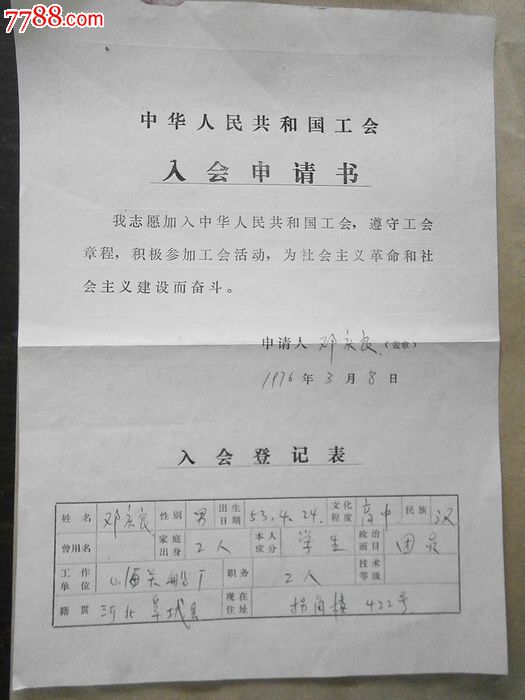 7788.com
中华人民共和国工会
入会申请书
我志愿加入中华人民共和国工会，遵守工会
章程，积极参加工会活动，为社会主义革命和社
会主义建设而奋斗。
申请人 邓庆良 （盖章）
1976年3月8日
入会登记表
姓名 邓庆良 性别 男 出生日期 53.4.24. 文化程度 高中 民族 汉
曾用名 家庭出身 工人 本人成分 学生 政治面目 团员
工作单位 山海关船厂 职务 工人 技术等级
籍贯 河北阜城县 现在住址 拐角楼 422号